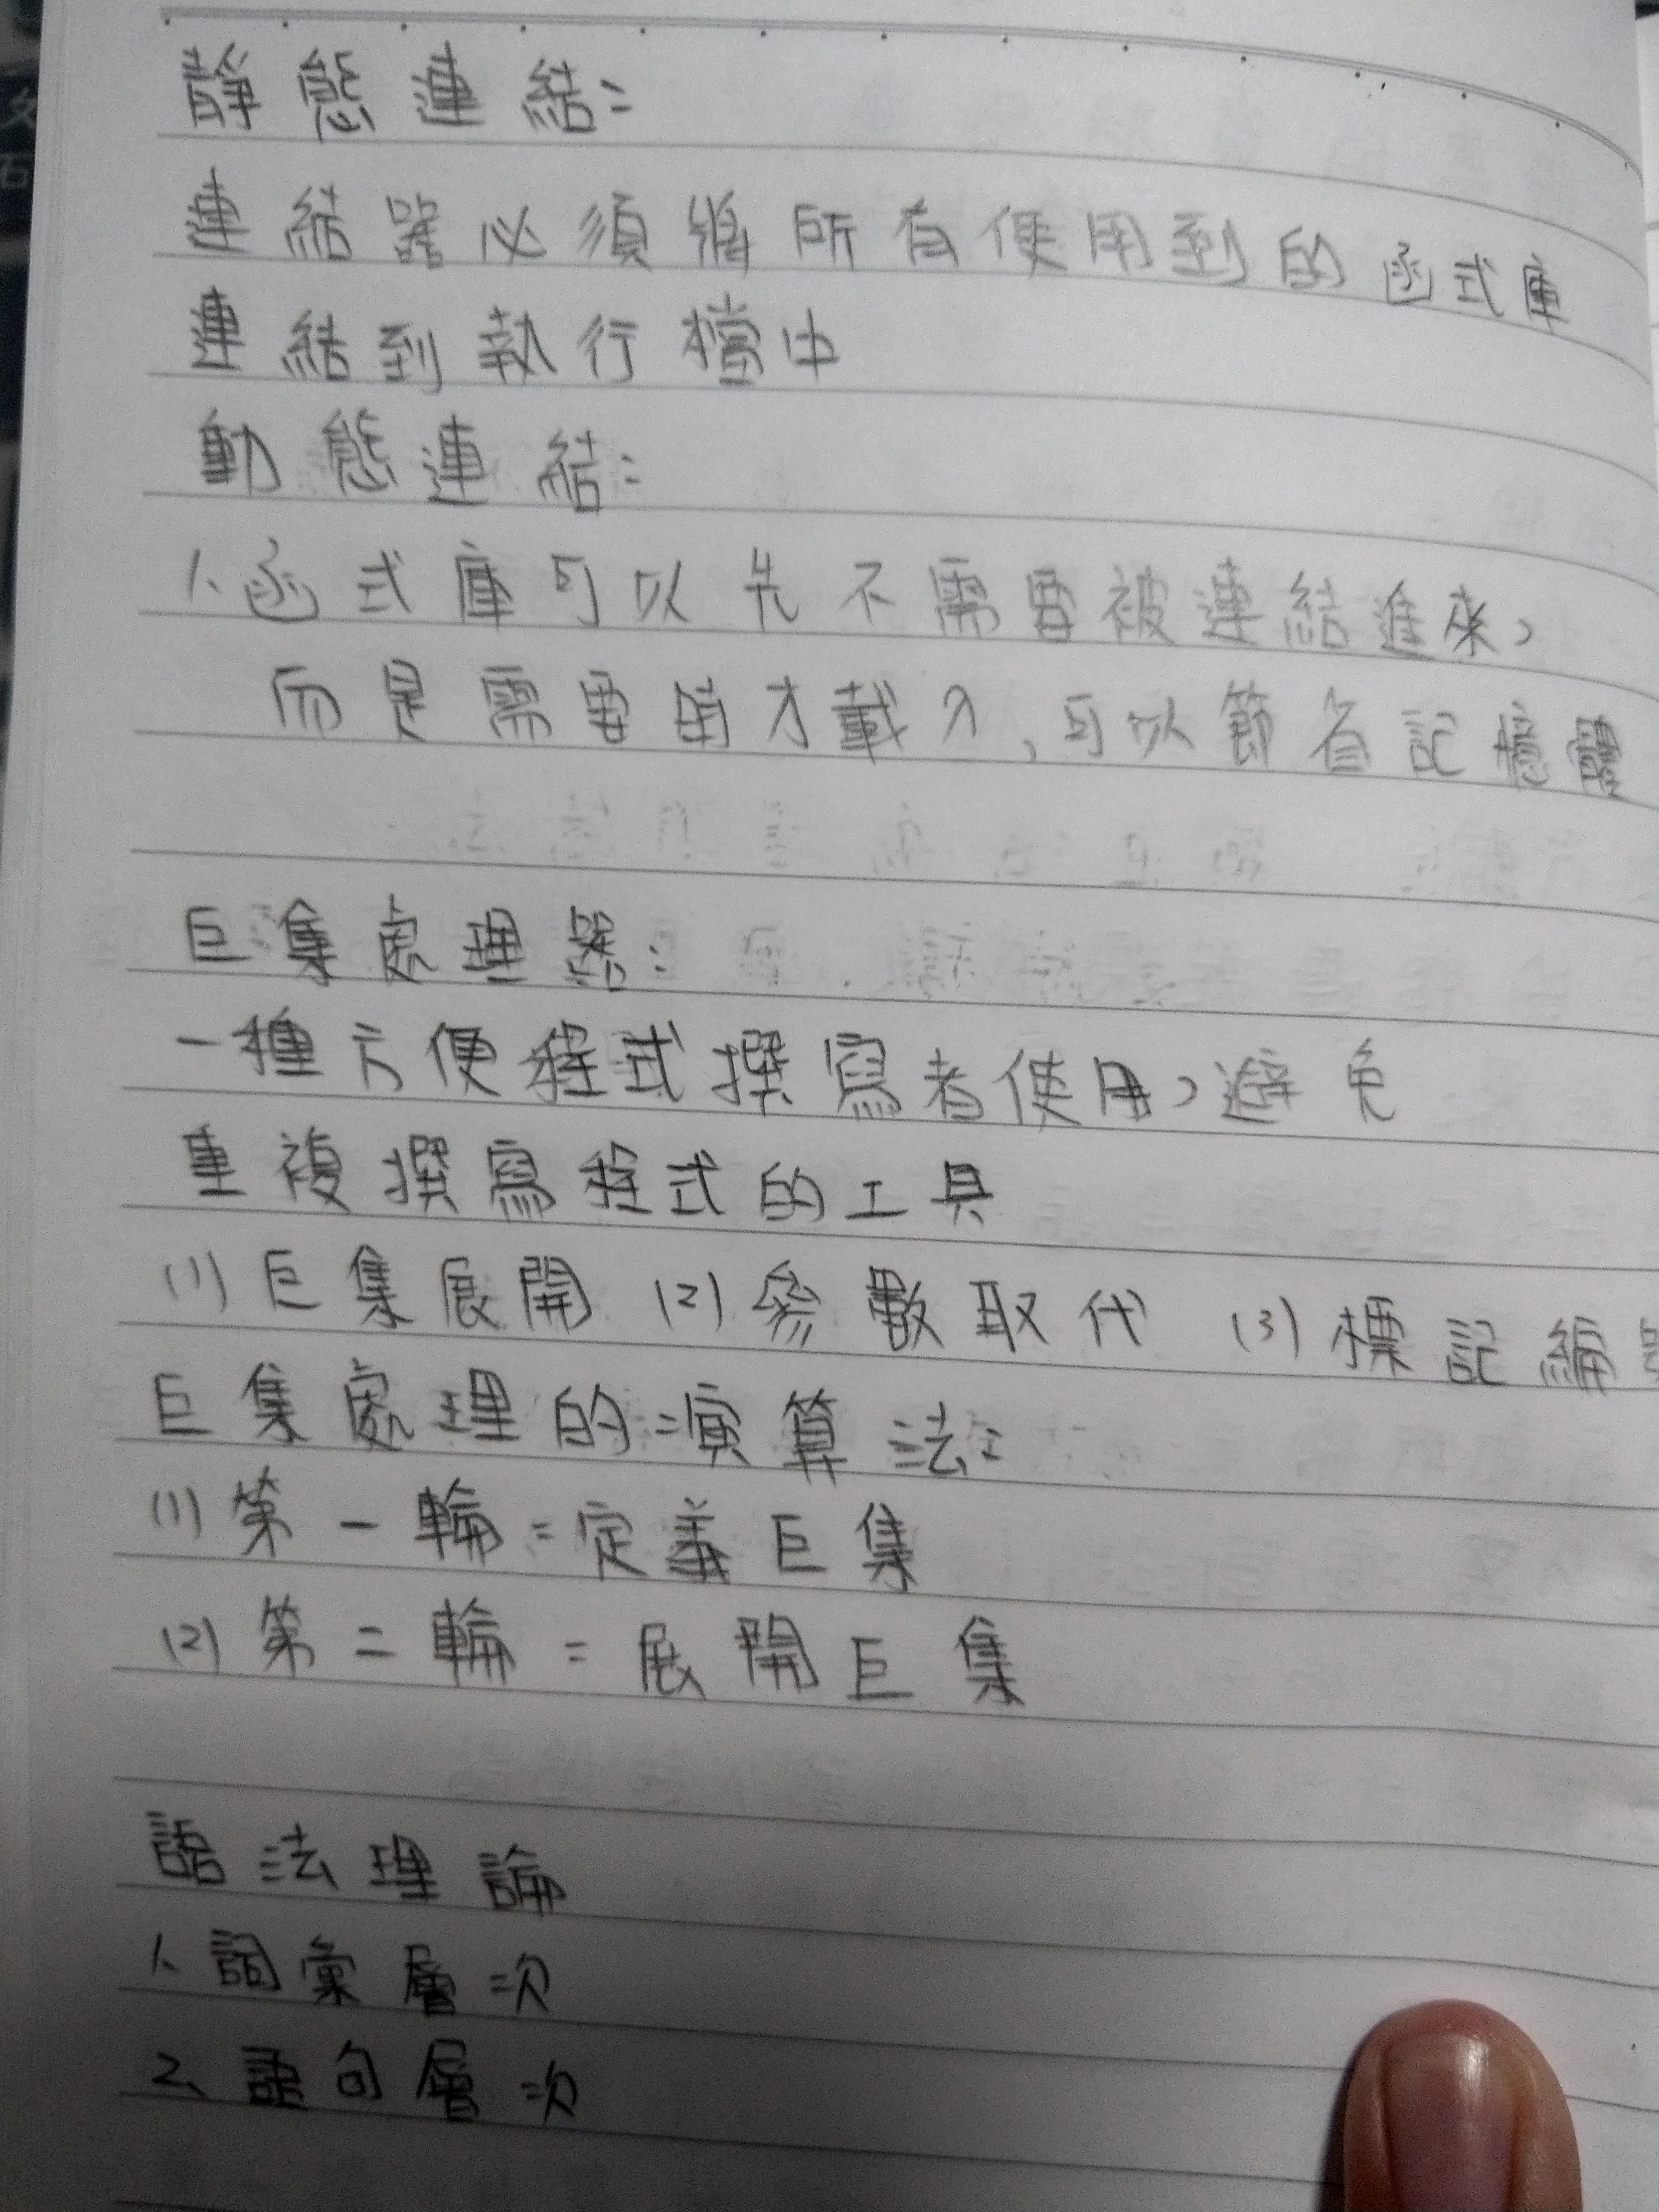 靜態連結:
連結器必須將所有使用到的函式庫
連結到執行檔中
動態連結:
1、函式庫可以先不需要被連結進來,
而是需要時才載入,可以節省記憶體
巨集處理器:
一種方便程式撰寫者使用,避免
重複撰寫程式的工具
(1)巨集展開 (2)參數取代 (3)標記編號
巨集處理的演算法:
(1)第一輪:定義巨集
(2)第二輪:展開巨集
語法理論
1、詞彙層次
2、語句層次